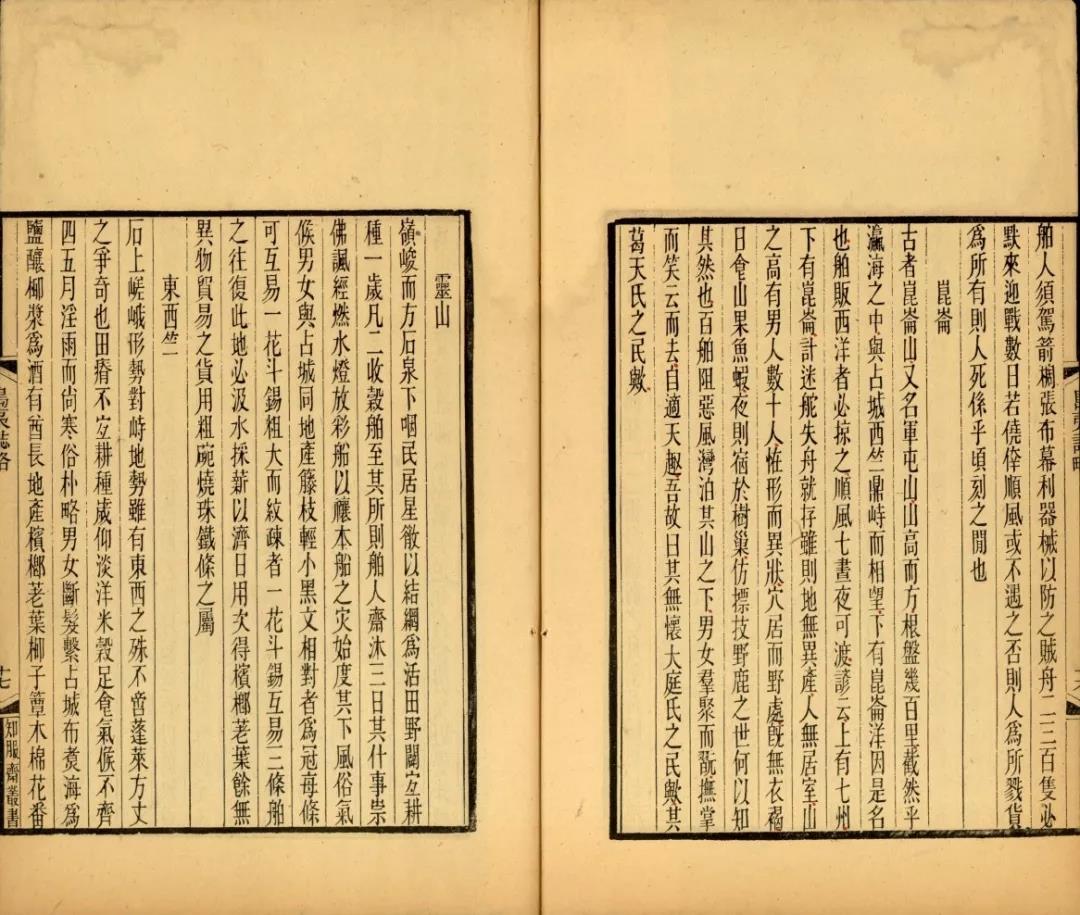 舶人須駕箭棚張布幕利器械以防之賊舟二三百隻必
默來迎戰數日若僥倖順風或不遇之否則人為所戮貨
為所有則人死係乎頃刻之閒也
崑崙
古者崑崙山又名軍屯山山高而方根盤幾百里截然乎
瀛海之中與占城西竺鼎峙而相望下有崑崙洋因是名
也舶販西洋者必掠之順風七晝夜可渡諺云上有七州
下有崑崙計迷舵失舟就存雖則地無異產人無居室山
之高有男人數十人怪形而異狀穴居而野處旣無衣褐
日食山果魚蝦夜則宿於樹巢仿摽技野鹿之世何以知
其然也百舶阻惡風灣泊其山之下男女羣聚而翫撫掌
而笑云而去自適天趣吾故曰其無懷大庭氏之民歟其
葛天氏之民歟
靈山
嶺峻而方石泉下咽民居星散以結網為活田野闢宜耕
種一歲凡二收穀舶至其所則舶人齋沐三日其什事崇
佛諷經燃水燈放彩船以禳本船之灾始度其下風俗氣
候男女與占城同地產籐枝輕小黑文相對者為冠每條
可互易一花斗錫粗大而紋疎者一花斗錫互易三條舶
之往復此地必汲水採薪以濟日用次得檳榔荖葉餘無
異物貿易之貨用粗碗燒珠鐵條之屬
東西竺
石上嵯峨形勢對峙地勢雖有東西之殊不啻蓬萊方丈
之爭奇也田瘠不宜耕種歲仰淡洋米穀足食氣候不齊
四五月淫雨而尚寒俗朴略男女斷髮繫占城布煑海為
鹽釀椰漿為酒有酋長地產檳榔荖葉椰子簟木棉花番
島夷誌略
知服齋叢書